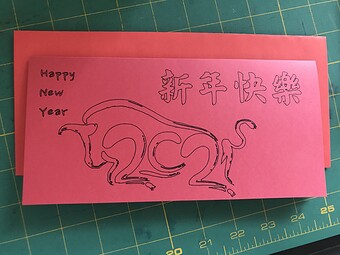 Happy
New
Year
新年快樂
2021
20 21 22 23 24 25